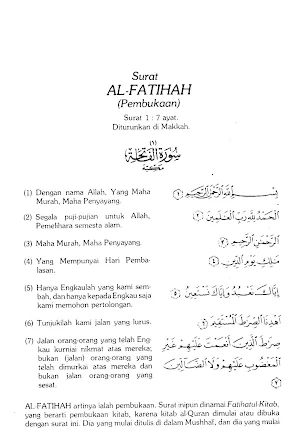 Surat
AL-FATIHAH
(Pembukaan)
Surat 1 : 7 ayat.
Diturunkan di Makkah.
(١)
سُورَةُ الْفَاتِحَةِ
مَكِّيَّةٌ
(1) Dengan nama Allah, Yang Maha
Murah, Maha Penyayang.
بِسْمِ اللَّهِ الرَّحْمَٰنِ الرَّحِيمِ ﴿١﴾
(2) Segala puji-pujian untuk Allah,
Pemelihara semesta alam.
الْحَمْدُ لِلَّهِ رَبِّ الْعَالَمِينَ ﴿٢﴾
(3) Maha Murah, Maha Penyayang.
الرَّحْمَٰنِ الرَّحِيمِ ﴿٣﴾
(4) Yang Mempunyai Hari Pemba-
lasan.
مَالِكِ يَوْمِ الدِّينِ ﴿٤﴾
(5) Hanya Engkaulah yang kami sem-
bah, dan hanya kepada Engkau saja
kami memohon pertolongan.
إِيَّاكَ نَعْبُدُ وَإِيَّاكَ نَسْتَعِينُ ﴿٥﴾
(6) Tunjukilah kami jalan yang lurus.
اهْدِنَا الصِّرَاطَ الْمُسْتَقِيمَ ﴿٦﴾
(7) Jalan orang-orang yang telah Eng-
kau kurniai nikmat atas mereka;
bukan (jalan) orang-orang yang
telah dimurkai atas mereka dan
bukan jalan orang-orang yang
sesat.
صِرَاطَ الَّذِينَ أَنْعَمْتَ عَلَيْهِمْ غَيْرِ
الْمَغْضُوبِ عَلَيْهِمْ وَلَا الضَّالِّينَ
﴿٧﴾
AL-FATIHAH artinya ialah pembukaan. Surat inipun dinamai Fatihatul-Kitab,
yang berarti pembukaan kitab, karena kitab al-Quran dimulai atau dibuka
dengan surat ini. Dia yang mulai ditulis di dalam Mushhaf, dan dia yang mulai